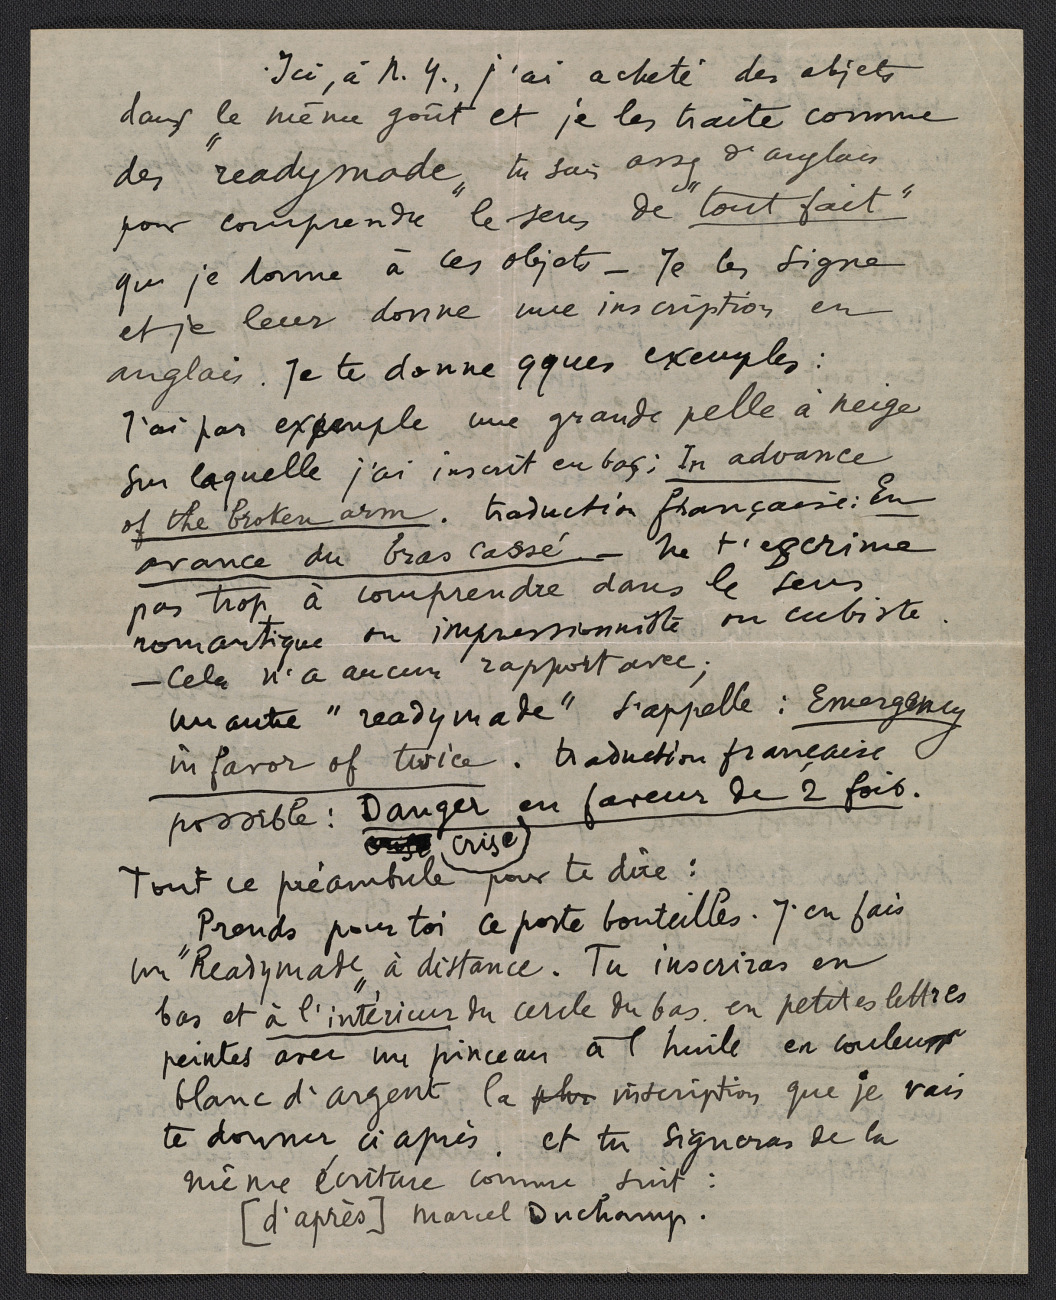 Ici, à N. Y., j'ai acheté des objets
dans le même goût et je les traite comme
des "readymade" tu sais assez d'anglais
pour comprendre le sens de "tout fait"
que je donne à ces objets — Je les signe
et je leur donne une inscription en
anglais. Je te donne qques exemples :
J'ai par exemple une grande pelle à neige
sur laquelle j'ai inscrit en bas : In advance
of the broken arm. traduction française : En
avance du bras cassé — ne t'escrime
pas trop à comprendre dans le sens
romantique ou impressionniste ou cubiste.
— Cela n'a aucun rapport avec ;
un autre "readymade" s'appelle : Emergency
in favor of twice. traduction française
possible : Danger en faveur de 2 fois.
crise (crise)
Tout ce préambule pour te dire :
Prends pour toi ce porte bouteilles. J'en fais
un "Readymade" à distance. Tu inscriras en
bas et à l'intérieur du cercle du bas, en petites lettres
peintes avec un pinceau à l'huile en couleur
blanc d'argent la inscription que je vais
te donner ci après, et tu signeras de la
même écriture comme suit :
[d'après] Marcel Duchamp.